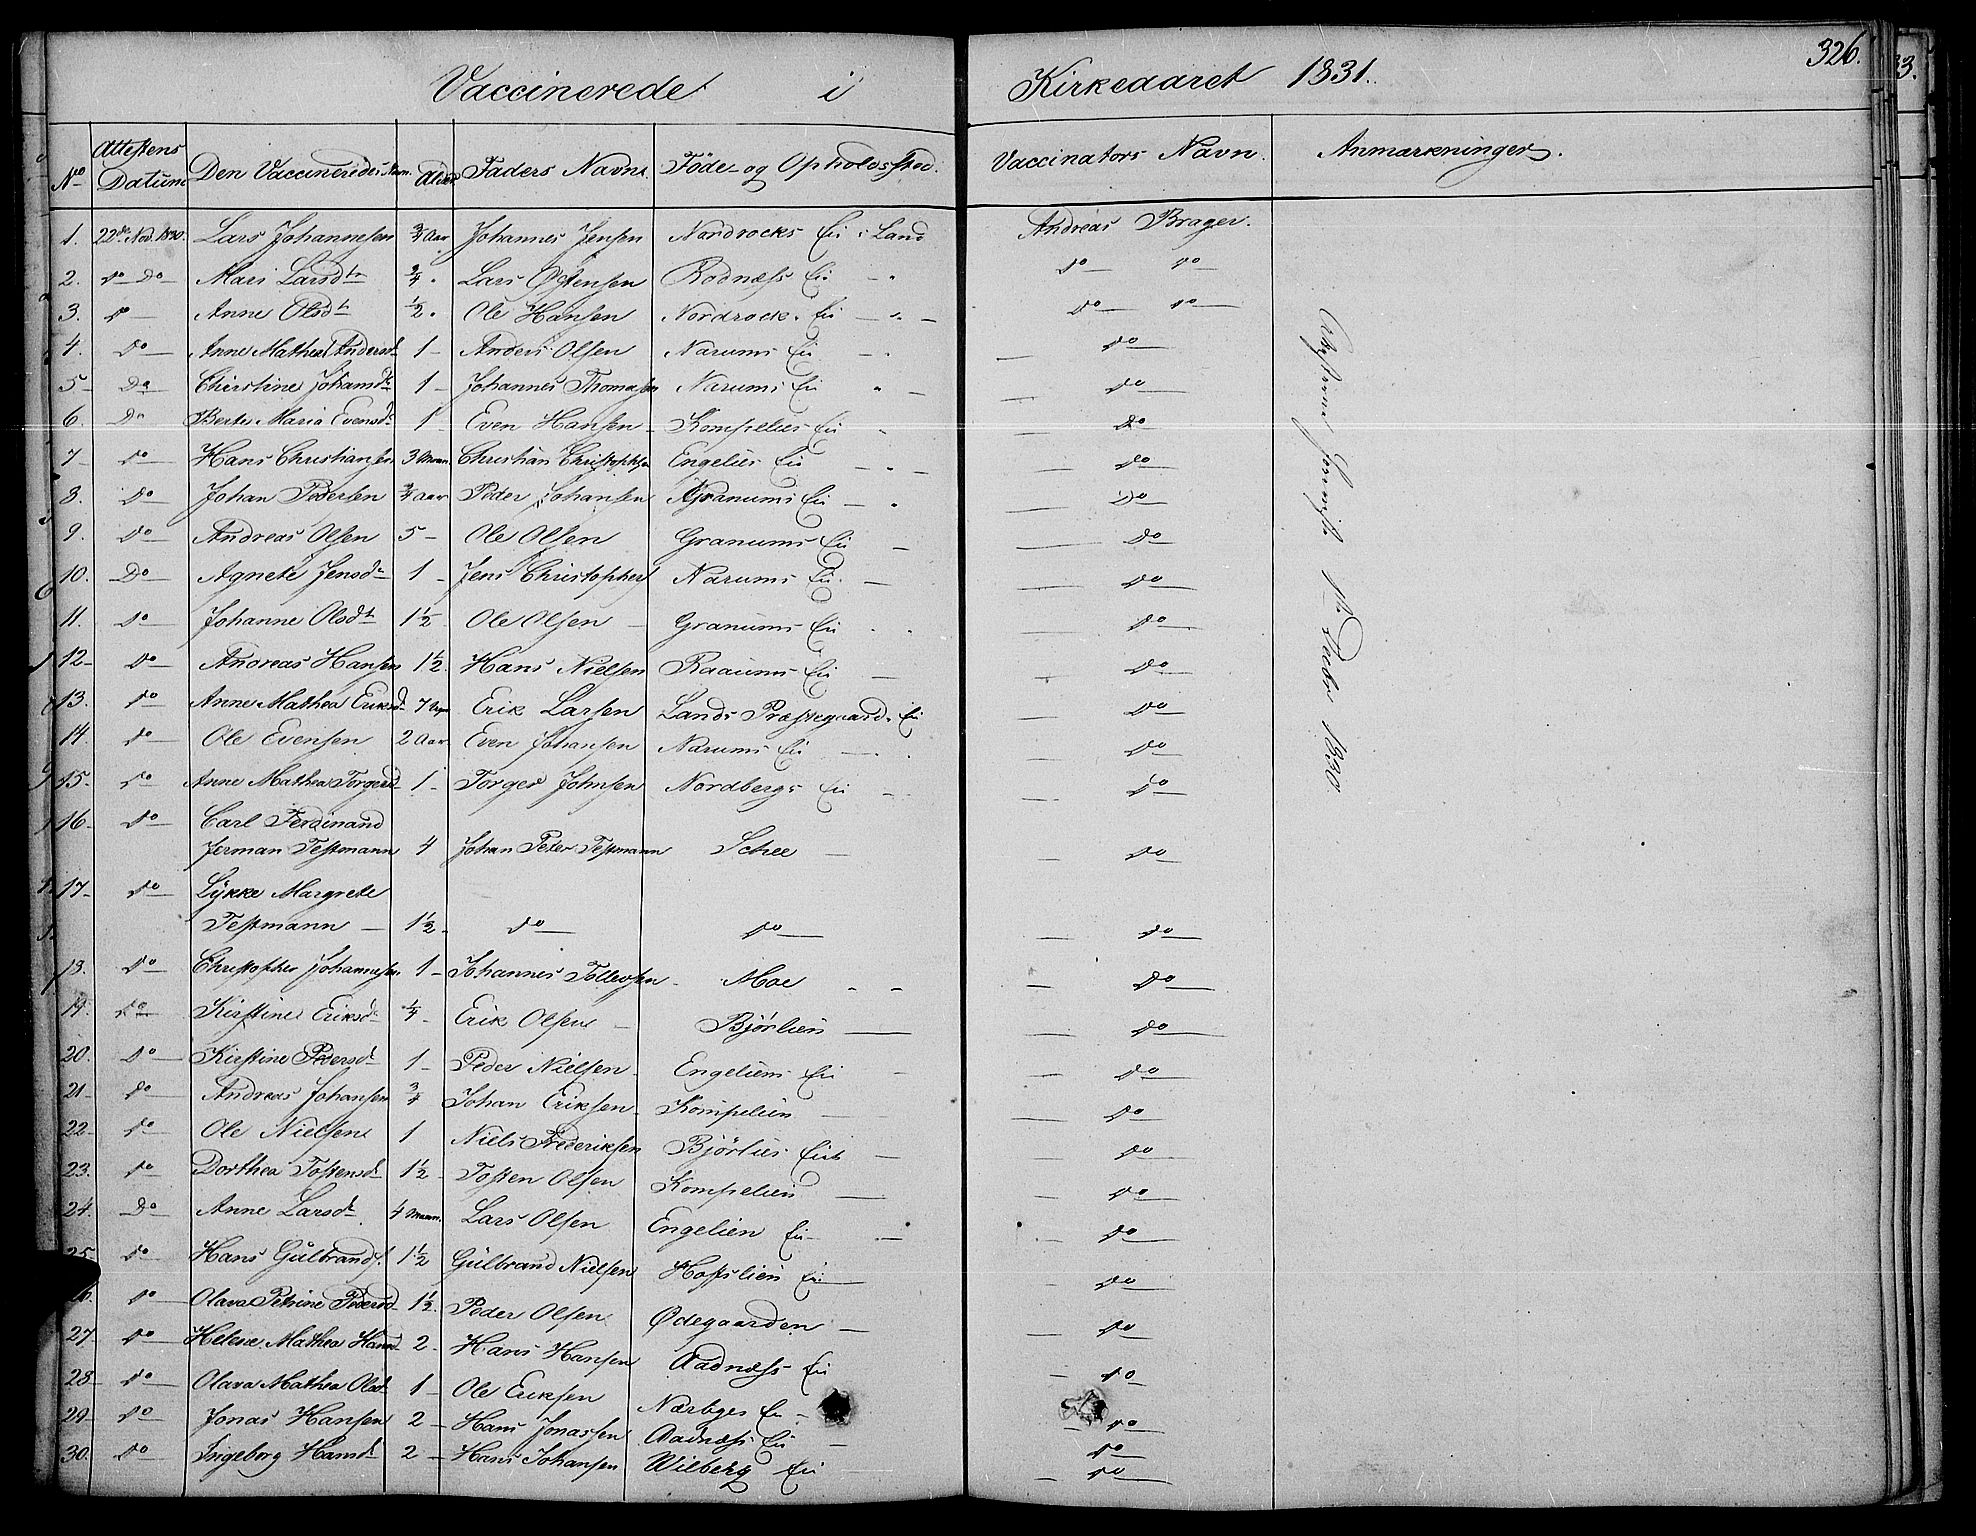 326.
33.
Vaccinerede i Kirkeaaret 1831.
No Attestens Datum Den Vaccineredes Navn. Alder Faders Navn. Föde- og Opholdssted. Vaccinators Navn. Anmærkninger.
1. 22de Nov. 1830. Lars Johannesen ¾ Aar Johannes Jensen Nordrocks Ei i Land Andreas Brager.
2. Do Do Mari Larsdtr ¾ " Lars Østensen Rodnæss Ei — " Do Do
3. Do Anne Olsdtr ½ " Ole Hansen Nordrocks Ei — " — Do Do
4. Do Anne Mathea Andersd 1 — Anders Olsen Narums Ei — " — Do
5 — Do Christine Johansdr 1 — Johannes Thomasen Narums Ei " — — Do
6. Do Berte Maria Evensdr 1 Even Hansen Kompelies Ei " — Do
7 — Do Hans Christiansen 3 Maan. Christian Christophsen Engelies Ei — " — — Do
8. Do Johan Pedersen ¾ Aar Peder Johansen Granums Ei — " — Do
9. Do Andreas Olsen 5 — Ole Olsen Granums Ei — — Do
10. Do Agnete Jensdr 1 — Jens Christophers Narums Ei — — Do
11. Do Johanne Olsdtr 1½ Ole Olsen — Granums Ei " " — Do
12 — Do Andreas Hansen 1½ Hans Nielsen Raaums Ei — — Do
13. Do Anne Mathea Eriksd 7 Erik Larsen Lands Præstegaards Ei — Do
14. Do Ole Evensen 2 Aar Even Johansen Narums Ei — — Do
15. Do Anne Mathea Torgersd 1 — Torger Johnsen Nordbergs Ei — — Do
16 — Do Carl Ferdinand
Jerman Testmann 4 Johan Peter Testmann Schee — — Do
17 — Do Lykke Margrete
Testmann — 1½ — Do Do — Do
18. Do Christopher Johannesen 1 — Johannes Tollevsen — Moe " — — Do
19. Do Kirstine Eriksdr ¼ — Erik Olsen — Bjørlien — — Do
20. Do Kirstine Pedersdr 1 — Peder Nielsen — Engeliens Ei — — Do
21 — Do Andreas Johansen ¾ Johan Eriksen — Kompelien — — Do
22 — Do Ole Nielsen 1 Niels Frederiksen Bjørlies Eie — — Do
23. Do Dorthea Tostensd 1½ — Tosten Olsen Kompelien — — Do
24. Do Anne Larsdr 4 Maan. Lars Olsen Engelien Ei — " — — Do
25 Do Hans Gulbrands. 1½ Gulbrand Nielsen Hofslien Ei — Do
26. Do Olava Petrine Pedersd 1½ — Peder Olsen Ødegaarden — — Do
27 Do Helene Mathea Hansd 2 — Hans Hansen Aadnæss Ei — Do
28 — Do Olava Mathea Olsd 1 — Ole Eriksen Nærbyes Ei — — Do
29 — Do Jonas Hansen 2 — Hans Jonassen Aadnæss Ei — Do
30. Do Ingeborg Hansdr 2 — Hans Johansen Wilberg Ei — Do
1te Decbr 1830